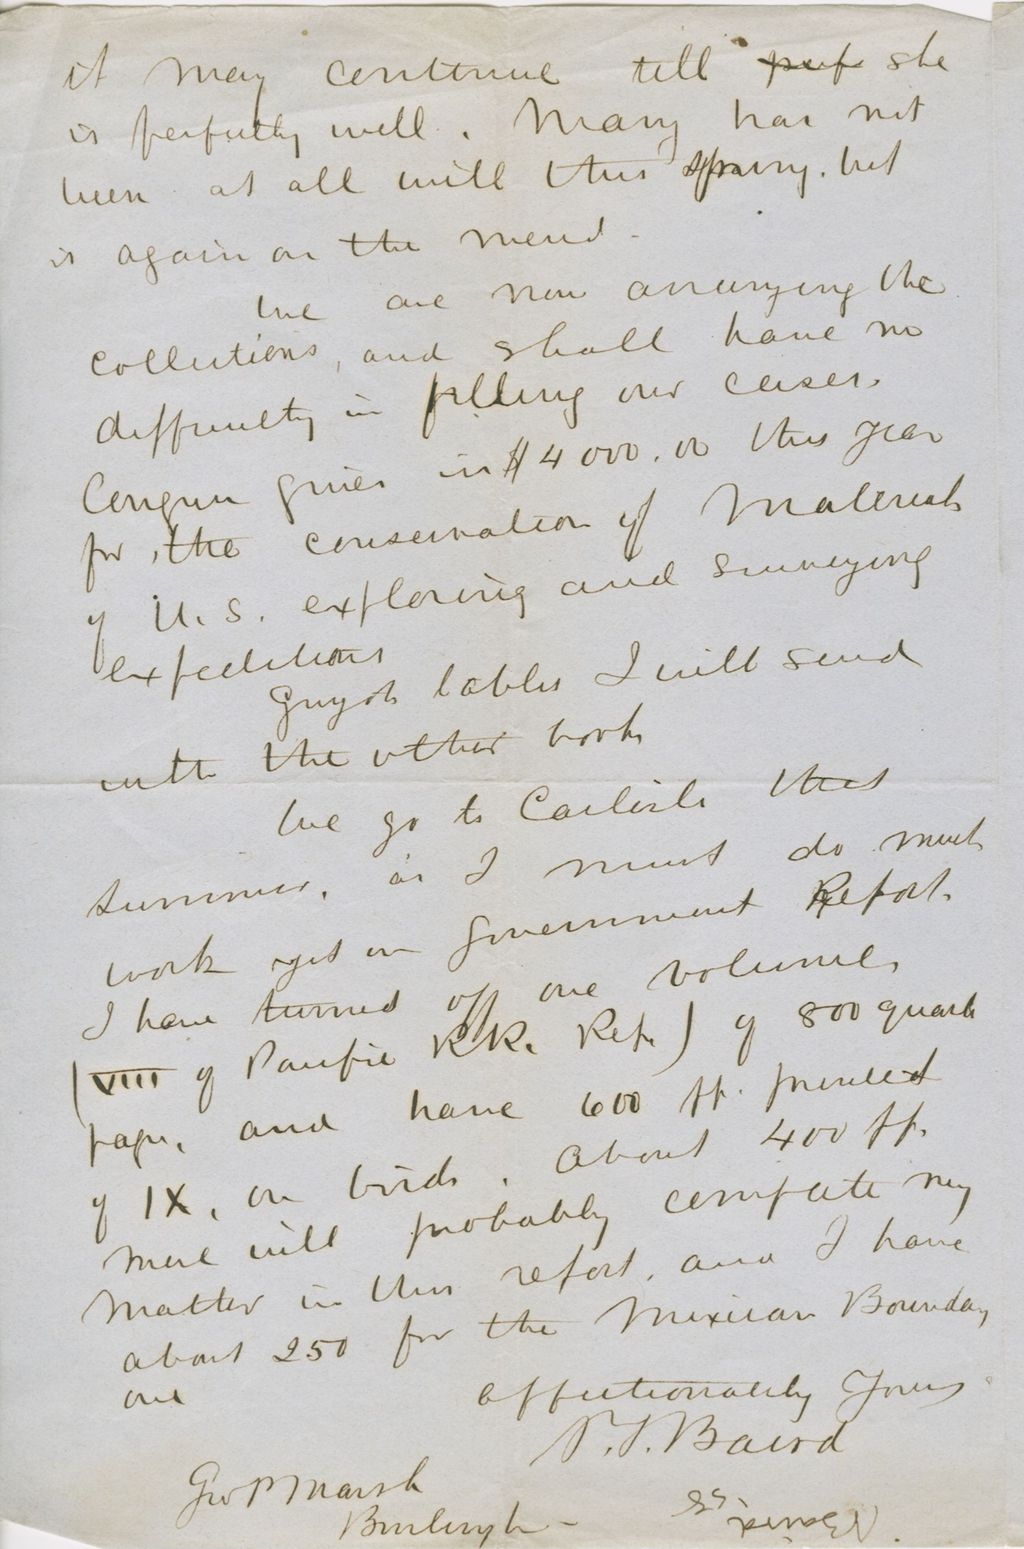 it may continue till perf she
is perfectly well. Mary has not
been at all well this spring, but
is again on the mend.
We are now arranging the
collections, and shall have no
difficulty in filling our cases.
Congress gives us $4000.00 this year
for the conservation of Materials
of U.S. exploring and surveying
expeditions
Guyots tables I will send
with the other books
We go to Carlisle this
summer, as I must do much
work yet on Government Report.
I have turned off one volume,
(VIII of Pacific R.R. Rep.) of 800 quarto
pages, and have 600 pp. printed
of IX, on birds. About 400 pp.
more will probably complete my
matter in this report, and I have
about 250 for the Mexican Boundary
one
Affectionately Yours
S. F. Baird
Geo P Marsh
Burlington
Baird
58